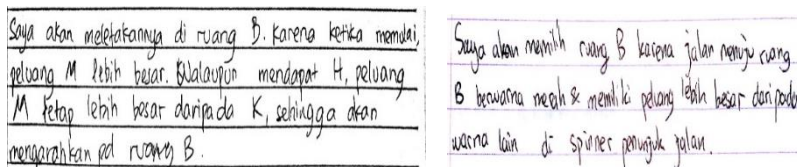 Saya akan meletakannya di ruang B. Karena ketika memulai,
peluang M lebih besar. Walaupun mendapat H, peluang
M tetap lebih besar daripada K, sehingga akan
mengarahkan pd ruang B.
Saya akan memilih ruang B karena jalan menuju ruang
B berwarna merah & memiliki peluang lebih besar dari pada
warna lain di spinner penunjuk jalan.